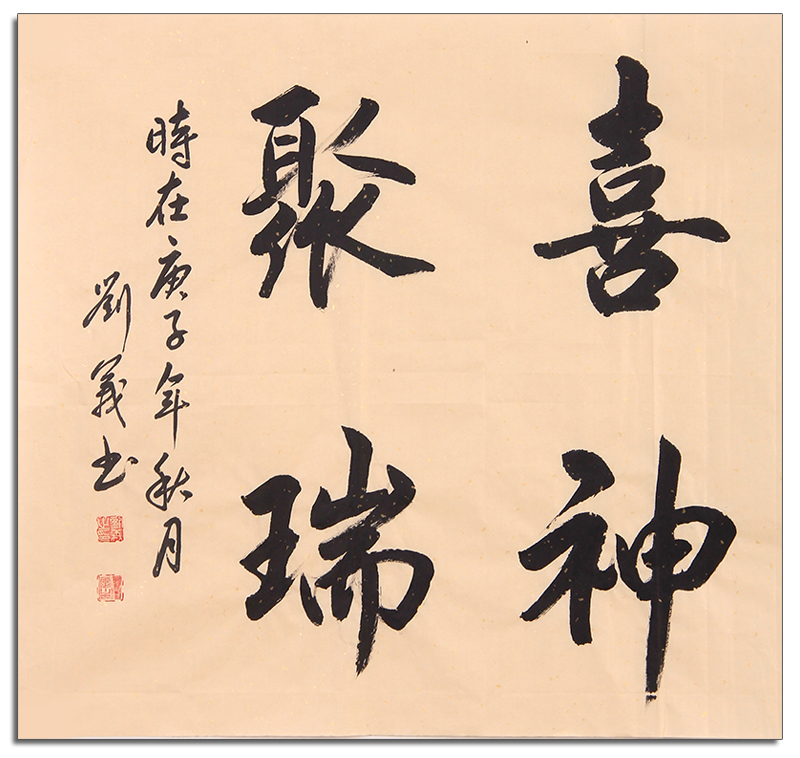 喜神
聚瑞
時在庚子年秋月
劉義书